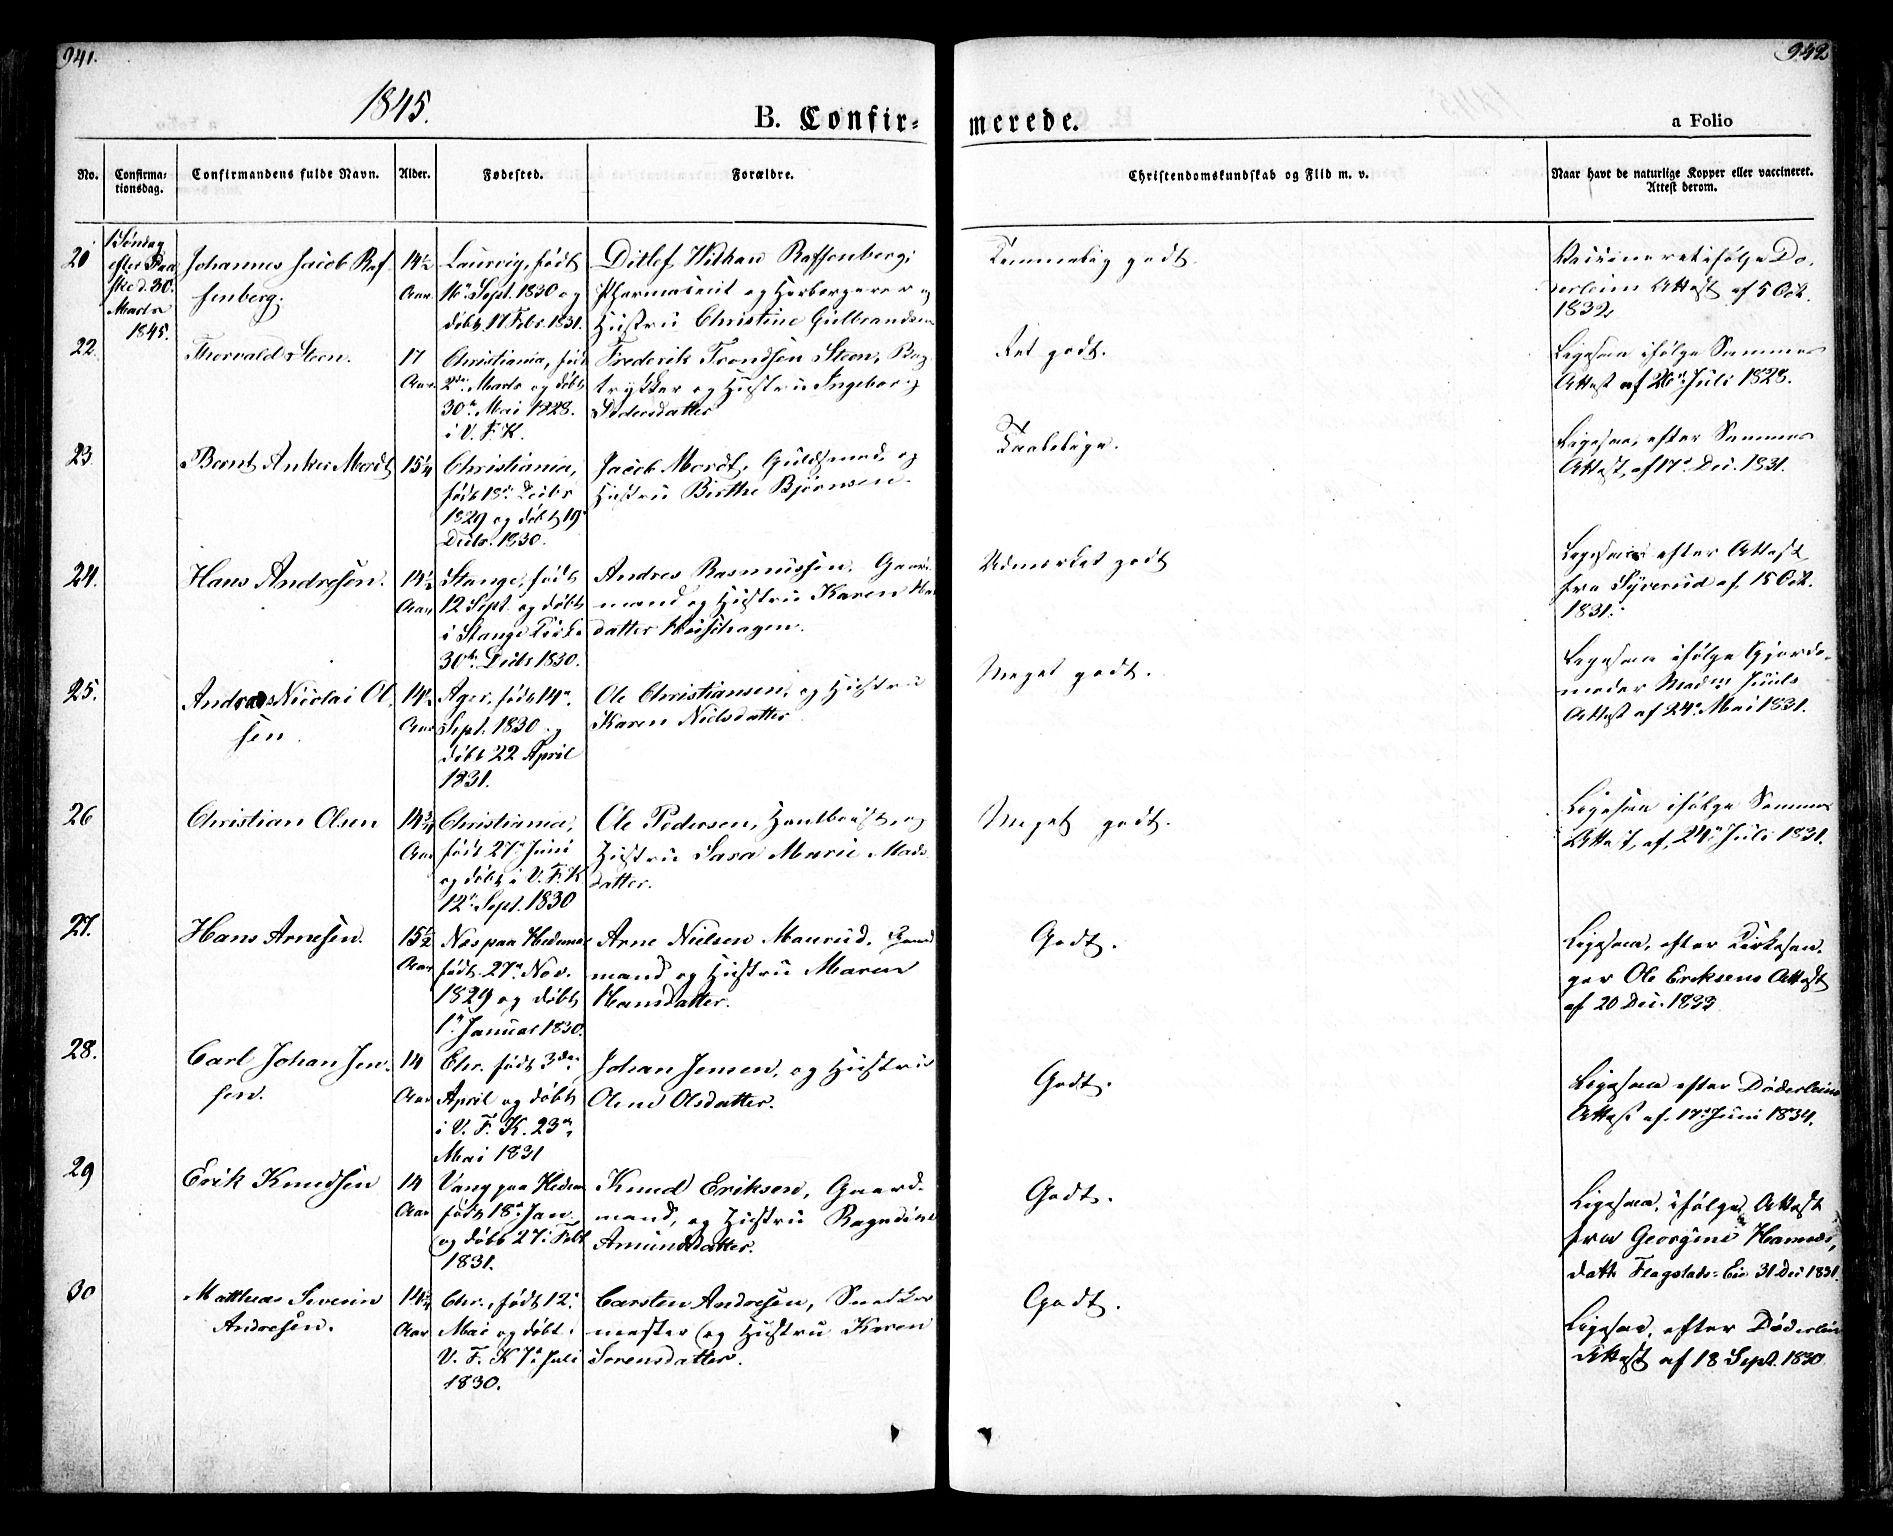 941.
942
1845.
B. Confir-
merede.
a Folio
No.
Confirma-
tionsdag.
Confirmandens fulde Navn.
Alder.
Fødested.
Forældre.
Christendomskundskab og Flid m. v.
Naar havt de naturlige Kopper eller vaccineret.
Attest derom.
21
1 Søndag
efter Paa
ske d. 30.
Marts
1845.
Johannes Jacob Raf
fenberg.
14½
Aar.
Laurvig, født
16 Sept. 1830 og
døbt 17 Febr. 1831.
Ditlef Raffenberg,
Pharmaceut og Herbergerer og
Hustru Christine Gulbrandsen
Temmelig godt.
Vaccineret ifølge Dø-
derleins Attest af 5 Oct.
1832
22
Thorvald Steen.
17
Aar.
Christiania, født
2den Marts og døbt
30te Mai 1828.
i V. F. K.
Frederik Trondsen Steen, Bog
trykker og Hustru Ingeborg
Pedersdatter
Ret godt.
Ligesaa ifølge Sammes
Attest af 26 Juli 1828.
23
Bernt Anker Mordt
15¼
Christiania,
født 18 Decbr
1829 og døbt 19
Decbr. 1830.
Jacob Mordt, Guldsmed, og
Hustru Birthe Bjørnsen.
Taalelige.
Ligesaa, efter Sammes
Attest, af 17 Dec. 1831.
24.
Hans Andresen.
14½
Aar
Stange, født
12 Sept og døbt
i Stange Kirke
30te Decbr 1830.
Andres Rasmussen, Gaard
mand og Hustru Karen
datter
Udmærket godt
Ligesaa efter Attest
fra Syverud af 15 Oct.
1831.
25.
Andreas Nicolai Ol
sen.
14½
Aar
Ager, født 14
Sept. 1830 og
døbt 22 April
1831.
Ole Christiansen, og Hustru
Karen Nielsdatter
Meget godt.
Ligesaa ifølge Gjorde-
moder Mad. Juuls
Attest af 24 Mai 1831.
26
Christian Olsen
14¾
Aar
Christiania,
født 27 Juni
og døbt i V. F. K
12 Sept. 1830
Ole Pedersen, og
Hustru Sara Marie Mads
datter.
Meget godt.
Ligesaa ifølge Sammes
Attest, af 24 Juli 1831.
27.
Hans Arnesen.
15½
Aar
Næs paa Hedema
født 27 Nov.
1829 og døbt
1 Januar 1830.
Arne Nielsen Maurud, Gaard
mand og Hustru Maren
Hansdatter.
Godt.
Ligesaa, efter Kirkesan-
ger Ole Eriksens Attest
af 20 Dec. 1833
28.
Carl Johan Jen-
sen.
14
Aar
Chr. født 3den
April og døbt
i V. F. K. 23
Mai 1831
Johan Jensen, og Hustru
Olene Olsdatter.
Godt.
Ligesaa efter Døderleins
Attest af 17 Juni 1834.
29
Erik Knudsen
14
Aar
Vang paa Hedem
født 18 Jan.
og døbt 27 Febr
1831.
Knud Eriksen, Gaard-
mand, og Hustru Ragndine
Amundsdatter.
Godt.
Ligesaa, ifølge Attest
fra Georgine Hannes-
datt. Flagstads-Eie 31 Dec 1831.
30
Matthias Severin
Andresen.
14¾
Aar
Chr., født 12
Mai og døbt i
V. F. K 7 Juli
1830.
Carsten Andresen, Snedker
mester og Hustru Karen
Sørensdatter.
Godt.
Ligesaa, efter Døderleins
Attest af 18 Sept. 1830